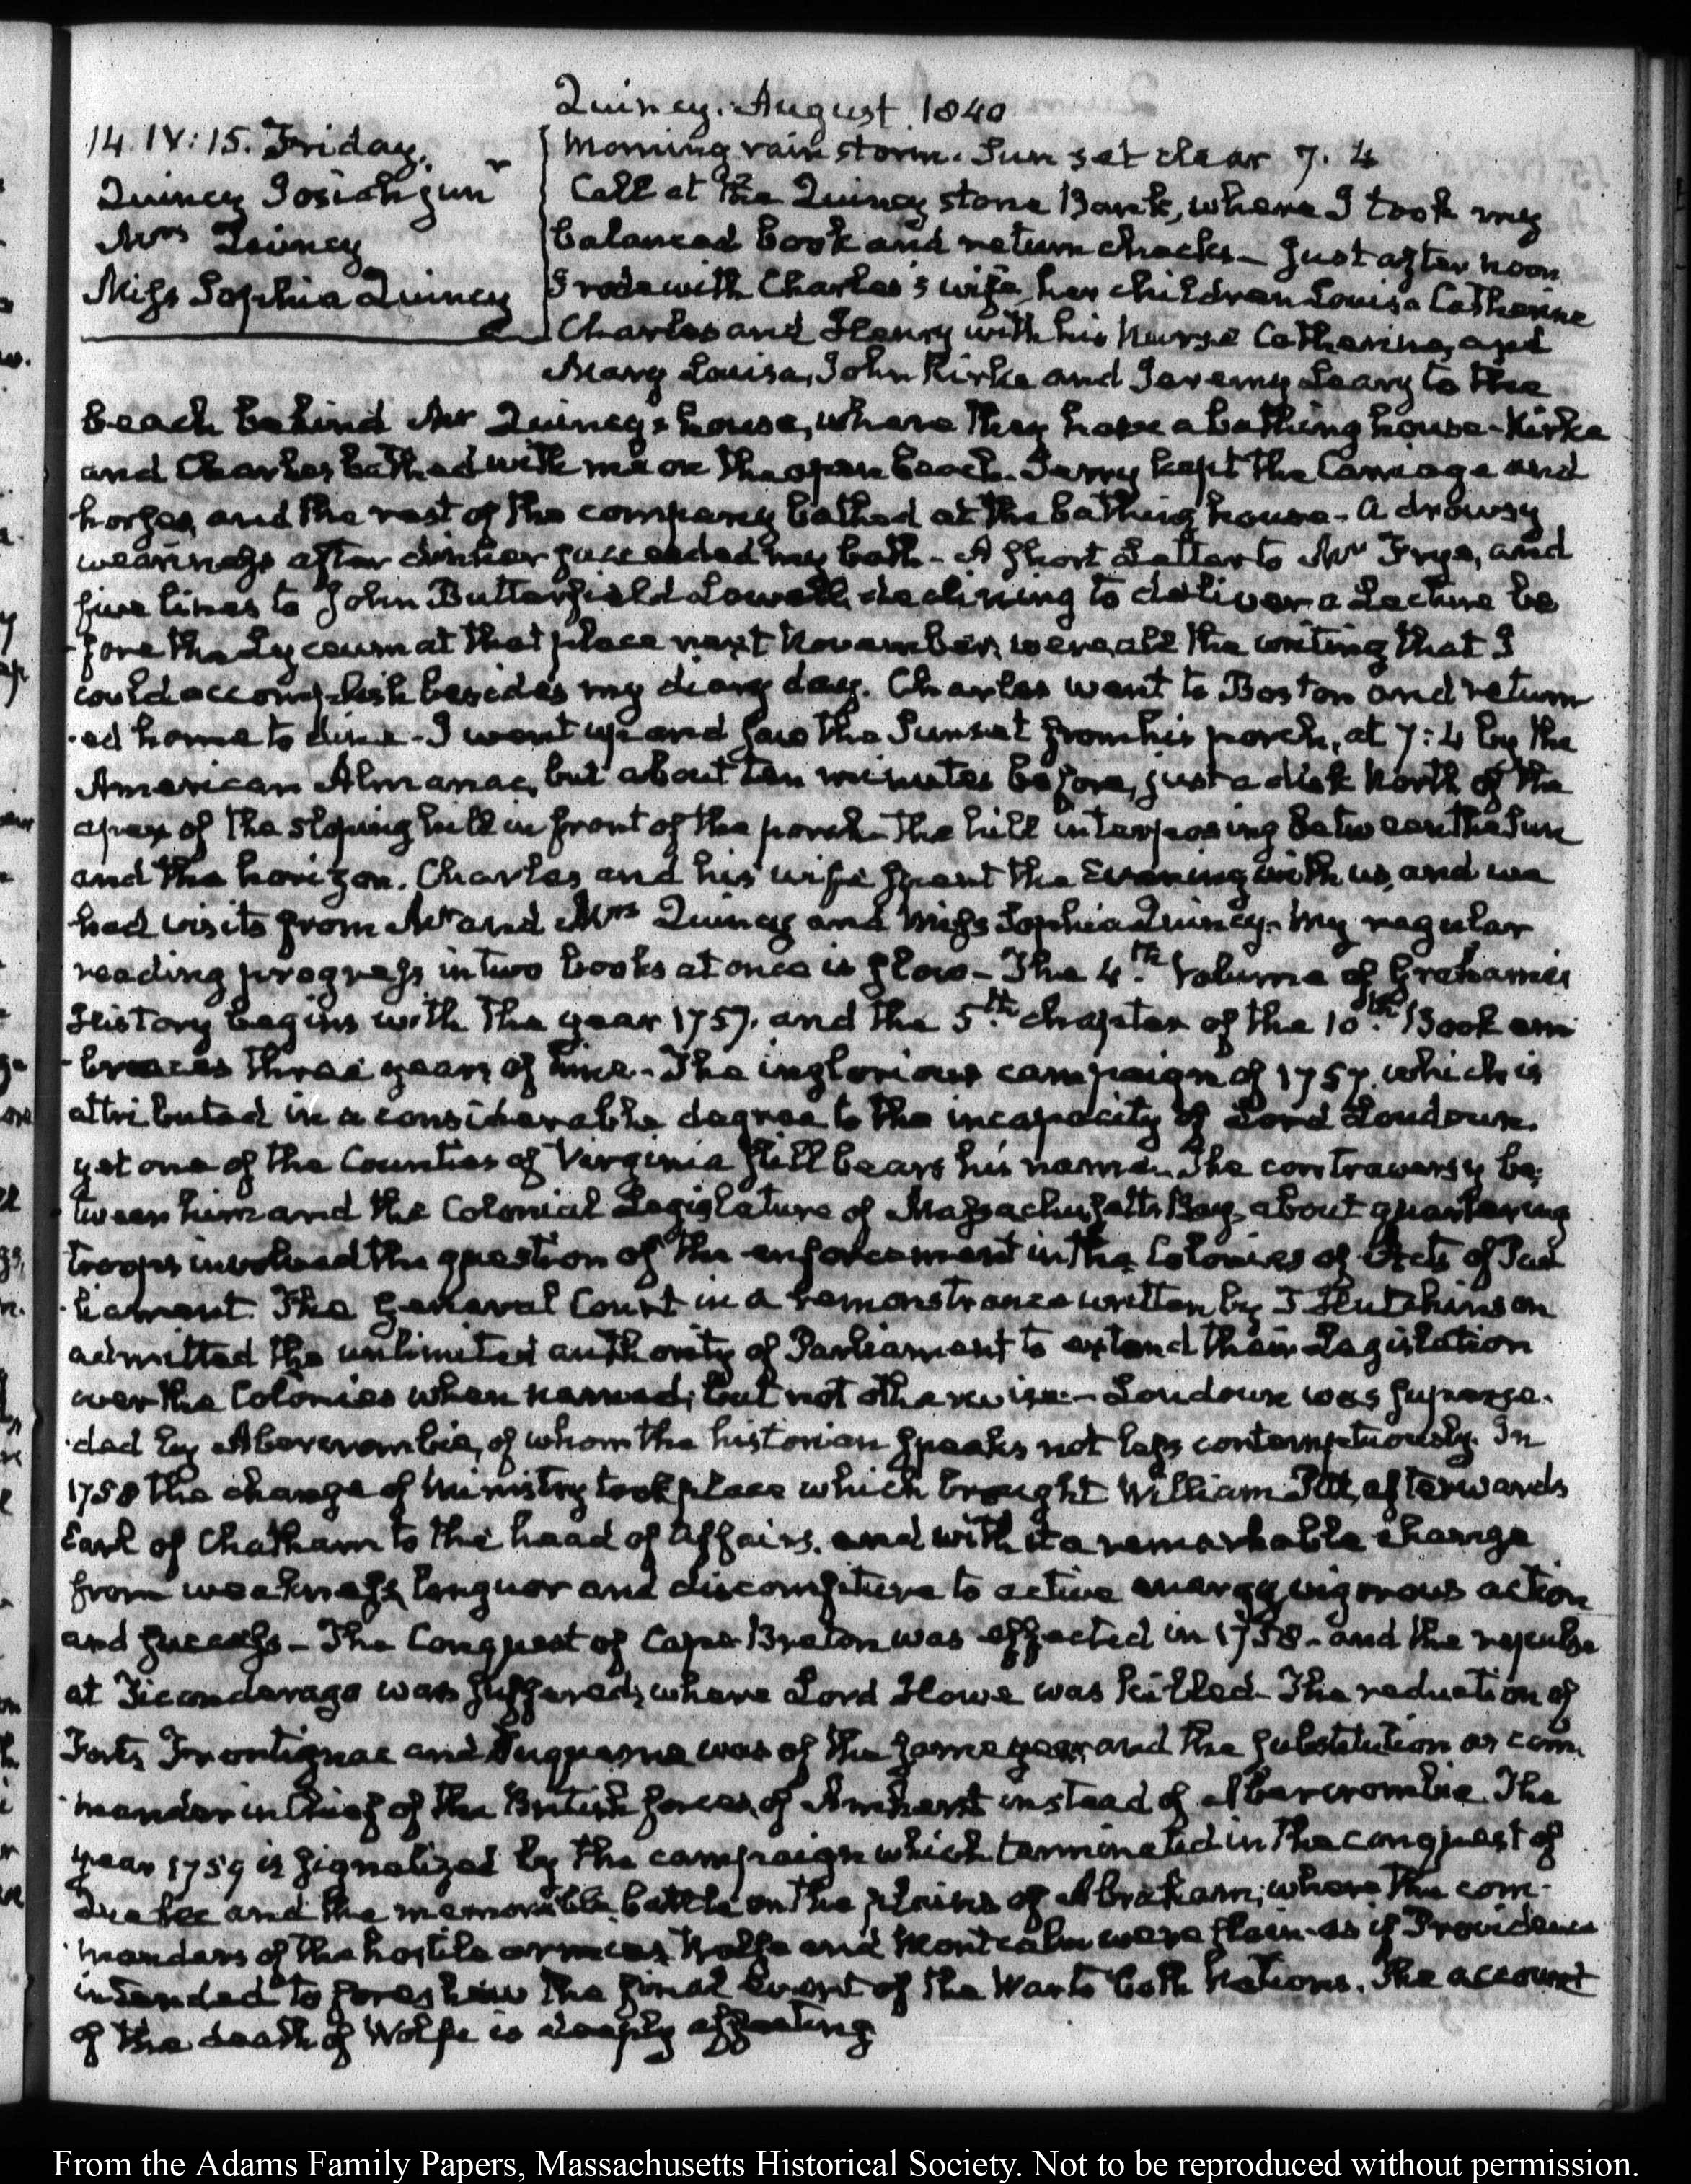 Quincy. August 1840
14. IV:15. Friday.
Quincy Josiah junr
Mrs Quincy
Miss Sophia Quincy
Morning rain storm. Sun set clear 7. 4
Call at the Quincy stone Bank, where I took my
balanced book and return checks – Just after noon
I rode with Charles's wife, her children Louisa Catherine
Charles and Henry with his Nurse Catherine, and
Mary Louisa, John Kirke and Jeremy Leary to the
beach behind Mr Quincy's house, where they have a bathing house – Kirke
and Charles bathed with me on the open beach. Jerry kept the Carriage and
horses, and the rest of the company bathed at the bathing house – A drowsy
weariness after dinner succeeded my bath – A short Letter to Mr Frye, and
five lines to John Butterfield Lowell, declining to deliver a Lecture be
-fore the Lyceum at that place next November, were all the writing that I
could accomplish besides my diary day. Charles went to Boston and return
-ed home to dine – I went up and saw the Sunset from his porch, at 7:4 by the
American Almanac, but about ten minutes before, just a disk North of the
apex of the sloping hill in front of the porch – The hill interposing between the Sun
and the horizon. Charles and his wife spent the Evening with us, and we
had visits from Mr and Mrs Quincy and Miss Sophia Quincy. My regular
reading progress in two books at once is slow – The 4.th Volume of Grahame's
History begins with the year 1757. and the 5.th chapter of the 10.th Book em
-braces three years of time – The inglorious campaign of 1757. which is
attributed in a considerable degree to the incapacity of Lord Loudoun.
yet one of the Counties of Virginia still bears his name. The controversy be
-tween him and the Colonial Legislature of Massachusetts Bay, about quartering
troops involved the question of the enforcement in the Colonies of Acts of Par
-liament. The General Court in a remonstrance written by T Hutchinson
admitted the unlimited authority of Parliament to extend their Legislation
over the Colonies when named; but not otherwise – Loudoun was superse-
-ded by Abercrombie, of whom the historian speaks not less contemptuously. In
1758 the change of Ministry took place which brought William Pitt, afterwards
Earl of Chatham to the head of affairs. and with it a remarkable change
from weakness, languor and discomfiture to active energy, vigorous action
and success – The Conquest of Cape Breton was effected in 1758 – and the repulse
at Ticonderago was suffered; where Lord Howe was killed – The reduction of
Forts Frontignac and Duquesne was of the same year and the substitution as com
-mander in Chief of the British forces, of Amherst instead of Abercrombie. The
year 1759 is signalized by the campaign which terminated in the conquest of
Quebec and the memorable battle on the plains of Abraham; where the com-
-manders of the hostile armies, Wolfe and Montcalm were slain – as if Providence
intended to foreshew the final Event of the War to both Nations. The account
of the death of Wolfe is deeply affecting
From the Adams Family Papers, Massachusetts Historical Society. Not to be reproduced without permission.